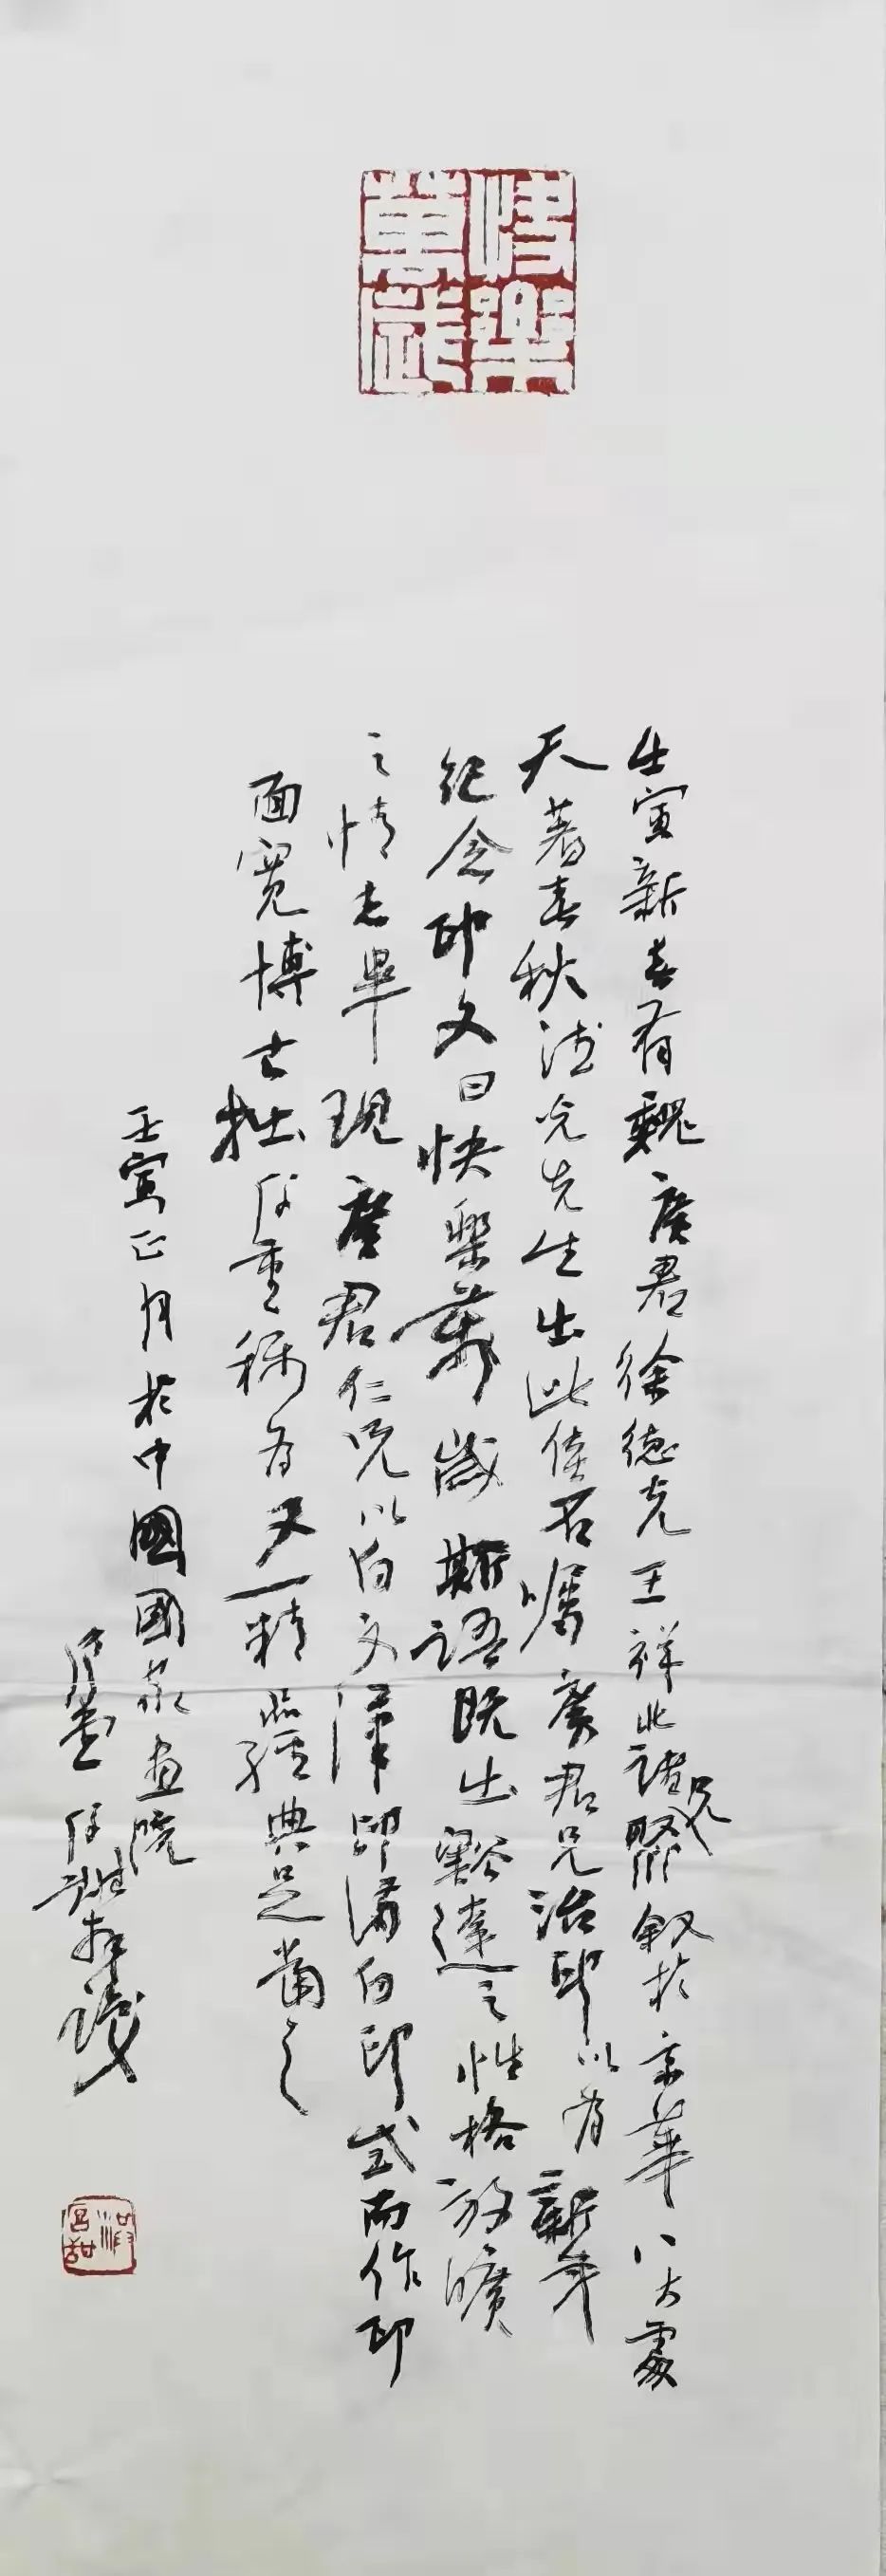 快樂
萬歲
壬寅新春有魏廣君徐德亮王祥北諸兄聚敘於京華八大處
天著春秋德亮先生出此佳石囑廣君兄治印以為新年
紀念印文曰快樂萬歲斯語既出豁達之性格放曠
之情志畢現廣君仁兄以白文漢印滿白印式而作印
面寬博古拙厚重稱為又一精品經典足當之
壬寅正月於中國國家畫院
拜識